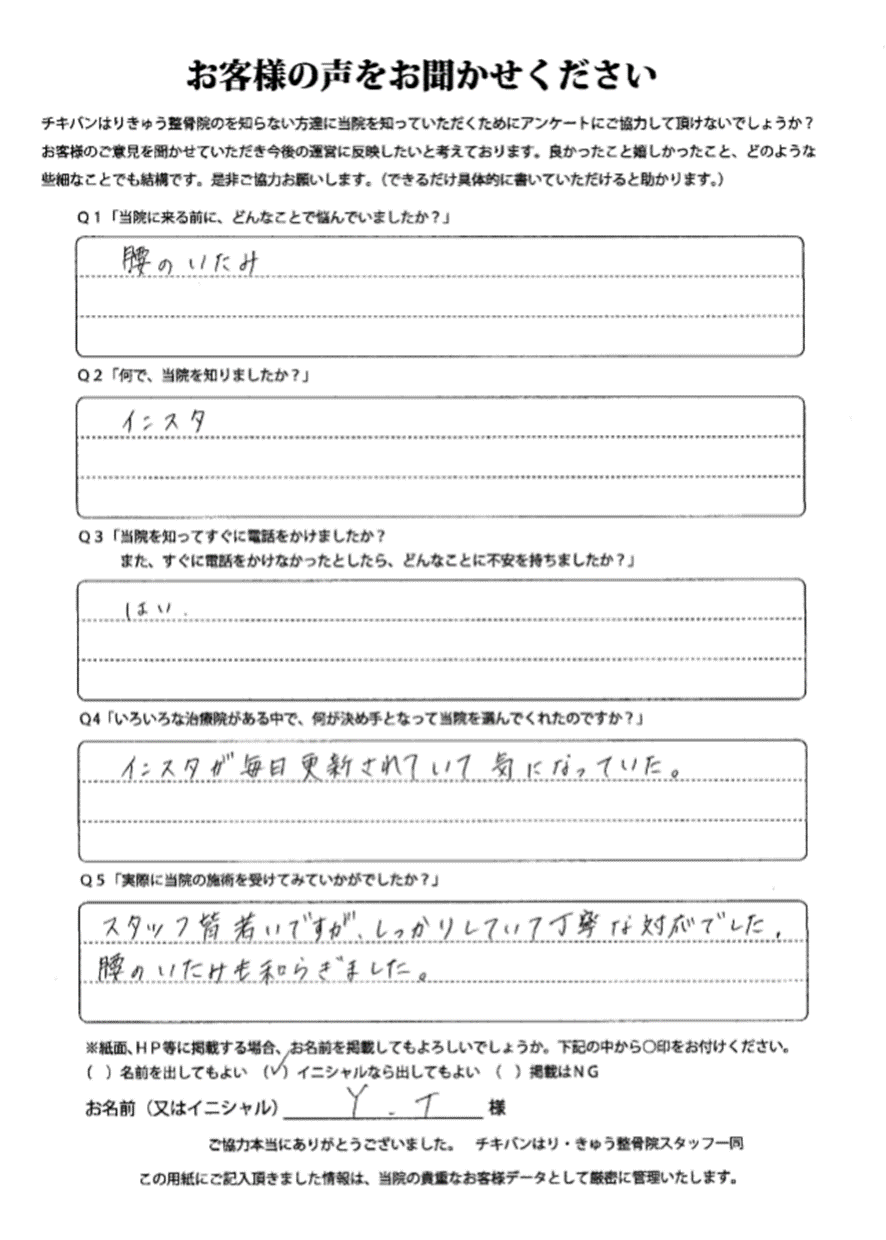 お客様の声をお聞かせください
チキバンはりきゅう整骨院のを知らない方達に当院を知っていただくためにアンケートにご協力して頂けないでしょうか？
お客様のご意見を聞かせていただき今後の運営に反映したいと考えております。良かったこと嬉しかったこと、どのような
些細なことでも結構です。是非ご協力お願いします。（できるだけ具体的に書いていただけると助かります。）
Ｑ１「当院に来る前に、どんなことで悩んでいましたか？」
腰のいたみ
Ｑ２「何で、当院を知りましたか？」
インスタ
Ｑ３「当院を知ってすぐに電話をかけましたか？
また、すぐに電話をかけなかったとしたら、どんなことに不安を持ちましたか？」
はい.
Q4「いろいろな治療院がある中で、何が決め手となって当院を選んでくれたのですか？」
インスタが毎日更新されていて気になっていた。
Ｑ５「実際に当院の施術を受けてみていかがでしたか？」
スタッフ皆若いですが、しっかりしていて丁寧な対応でした,
腰のいたみも和らぎました。
※紙面、ＨＰ等に掲載する場合、お名前を掲載してもよろしいでしょうか。下記の中から〇印をお付けください。
（ ）名前を出してもよい （✓）イニシャルなら出してもよい （ ）掲載はＮＧ
お名前（又はイニシャル） Y.T 様
ご協力本当にありがとうございました。 チキバンはり・きゅう整骨院スタッフ一同
この用紙にご記入頂きました情報は、当院の貴重なお客様データとして厳密に管理いたします。